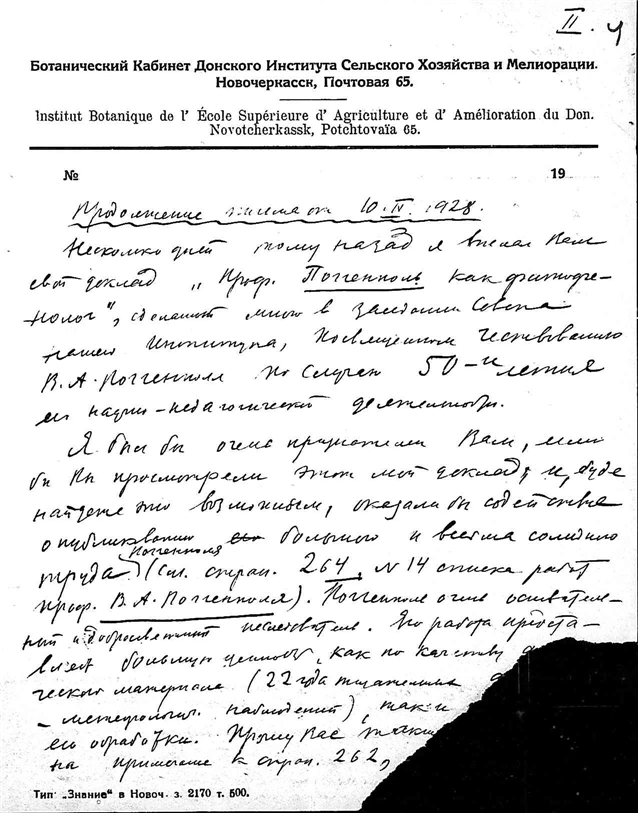 II. 4
Ботанический Кабинет Донского Института Сельского Хозяйства и Мелиорации.
Новочеркасск, Почтовая 65.
Institut Botanique de l' École Supérieure d' Agriculture et d' Amélioration du Don.
Novotcherkassk, Potchtovaïa 65.
№ 19
Продолжение письма от 10.IV.1928.
Несколько дней тому назад я выслал Вам
свой доклад „Проф. Поггенполь как фитофе-
нолог", сделанный мною в заседании Совета
нашего Института, посвященном чествованию
В.А. Поггенполя по случаю 50-и летия
его научно-педагогической деятельности.
Я был бы очень признателен Вам, если
бы Вы просмотрели этот мой доклад и, буде
найдете это возможным, оказали бы содействие
опубликованию большого и весьма солидного
труда Поггенполя (см. стран. 264, № 14 списка работ
проф. В.А. Поггенполя). Поггенполь очень основатель-
ный и добросовестный исследователь. Его работа предста-
вляет большую ценность, как по качеству
ческого материала (22 года тщательных
-метеорологич. наблюдений), так и
его обработки. Прошу Вас
на примечание к стран. 262,
Тип. „Знание" в Новоч. з. 2170 т. 500.